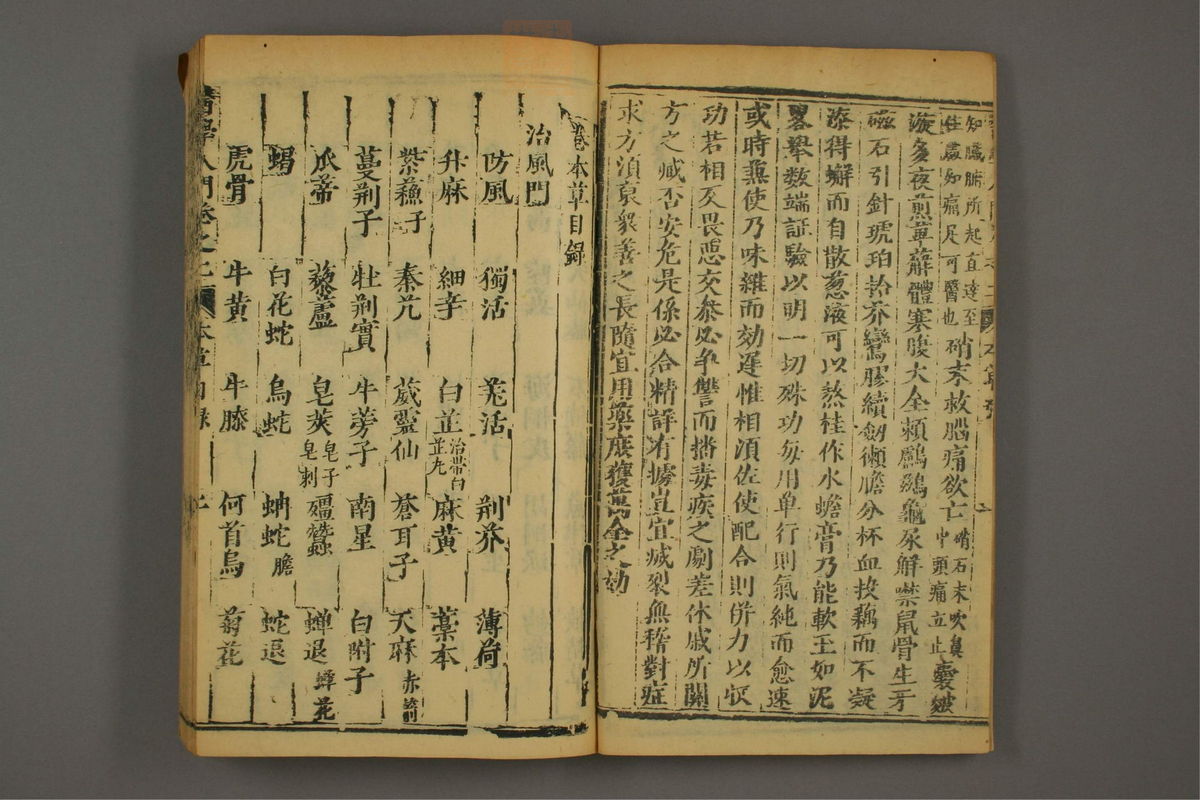 知臟腑所起直達至
住處知痛足可醫也硝末救腦痛欲亡硝石末吹鼻中頭痛立止憂皺
漩多夜煎萆薢體寒腹大全賴鸕鶿龜尿解噤鼠骨生牙
磁石引針琥珀拾芥鸞膠續劒獺膽分杯血投藕而不凝
漆得蠏而自散葱液可以熬桂作水蟾膏乃能軟玉如泥
畧舉数端証驗以明一切殊功每用单行則氣純而愈速
或時兼使乃味雜而効遲惟相湏佐使配合則併力以収
功若相反畏惡交叅必爭讐而播毒疾之劇差休戚所關
方之臧否安危是係必合精詳有據豈宜滅裂無稽對症
求方湏裒衆善之長隨宜用藥庶獲萬全之効
卷本草目錄
治風門
防風 獨活 羗活 荊芥 薄荷
升麻 細辛 白芷治帶白芷丸 麻黃 藁本
紫蘇子 秦艽 葳靈仙 蒼耳子 天麻赤箭
蔓荊子 牡荊實 牛蒡子 南星 白附子
瓜蒂 藜蘆 皂莢皂子皂刺 殭蠶 蟬退蟬花
蝟 白花蛇 烏蛇 蚺蛇膽 蛇退
虎骨 牛黃 牛膝 何首烏 菊花
醫學入門卷之二 本草目錄 二